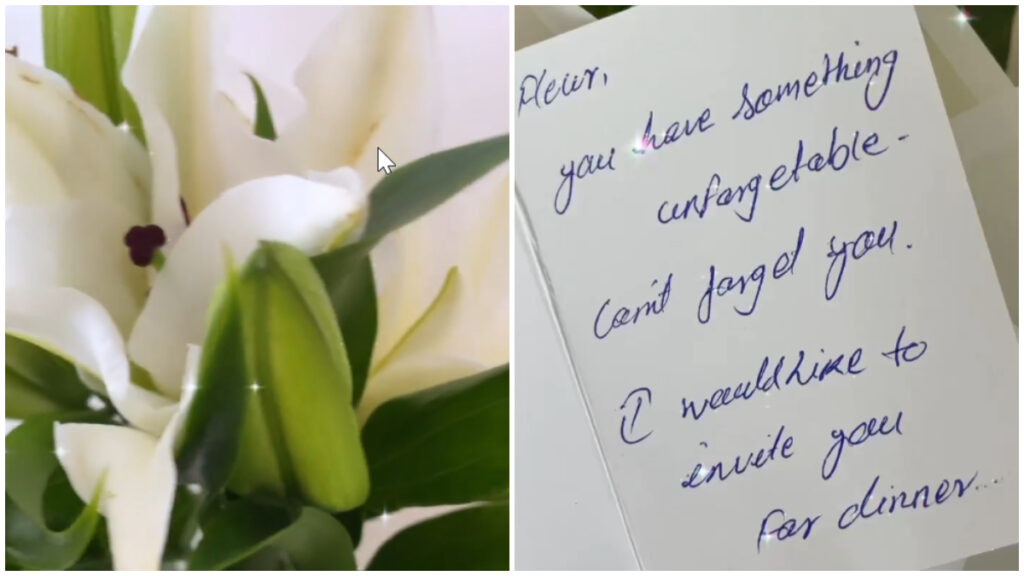 Dear,
you have something
unforgetable -
can't forget you.
I would like to
invite you
for dinner...